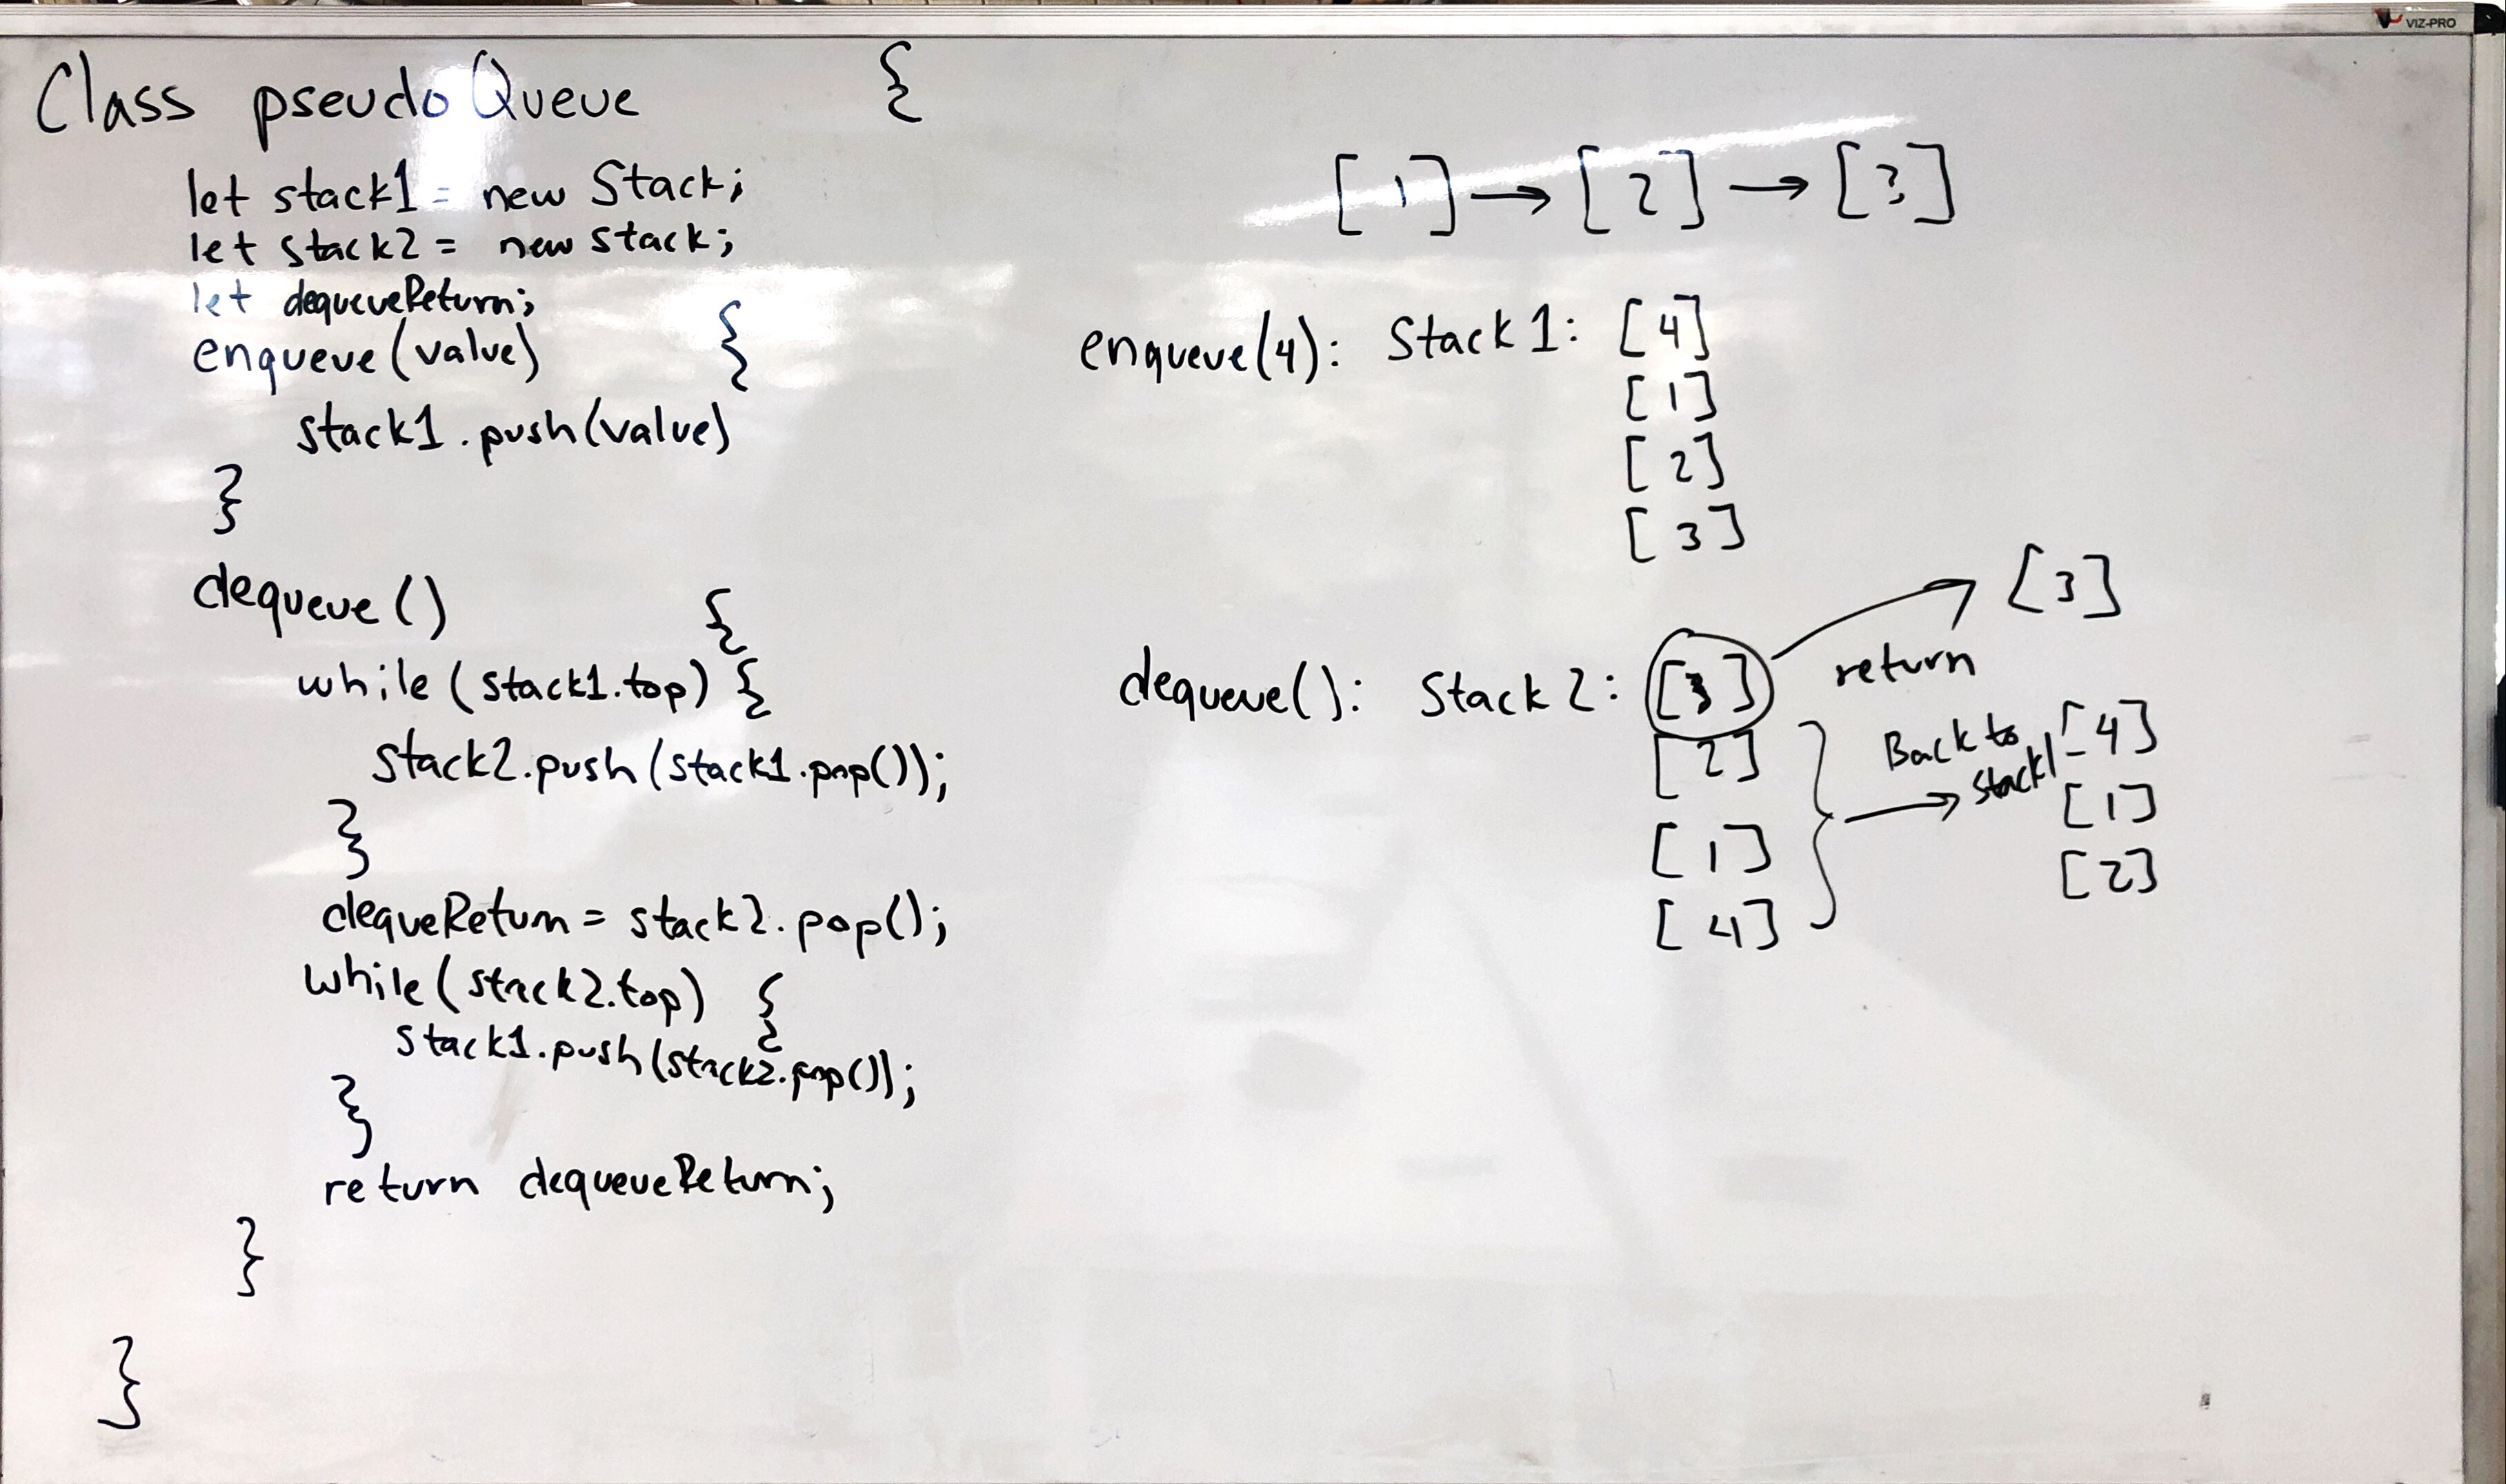 VIZ-PRO
Class pseudoQueue {
let stack1 = new Stack;
let stack2 = new stack;
let dequeueReturn;
enqueue(value) {
stack1.push(value)
}
dequeue() {
while (stack1.top) {
stack2.push(stack1.pop());
}
dequeReturn = stack2.pop();
while (stack2.top) {
stack1.push(stack2.pop());
}
return dequeueReturn;
}
}
[1] → [2] → [3]
enqueue(4): Stack 1: [4]
[1]
[2]
[3]
dequeue(): Stack 2: [3] return [3]
[2]
[1]
[4]
Back to
stack1 [4]
[1]
[2]